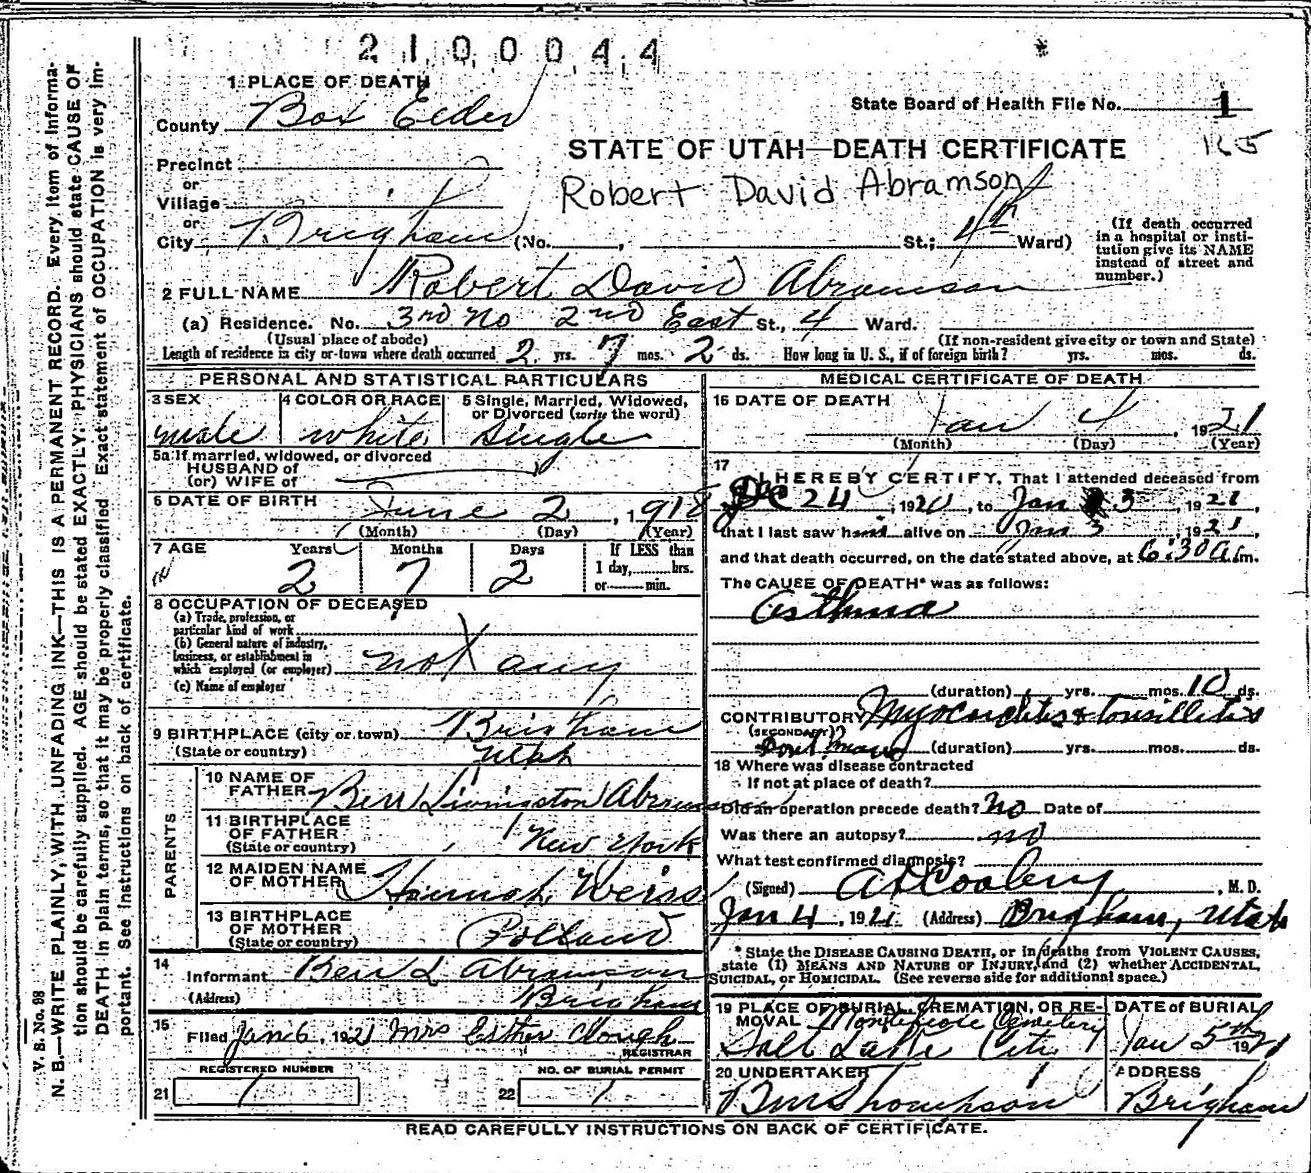 2100044
1 PLACE OF DEATH
County Box Elder
State Board of Health File No. 1
165
STATE OF UTAH—DEATH CERTIFICATE
Robert David Abramson
Precinct
or
Village
or
City Brigham (No. , St.; 4th Ward)
(If death occurred in a hospital or institution give its NAME instead of street and number.)
2 FULL NAME Robert David Abramson
(a) Residence. No. 3rd No 2nd East St., 4 Ward.
(Usual place of abode) (If non-resident give city or town and State)
Length of residence in city or town where death occurred 2 yrs. 7 mos. 2 ds. How long in U. S., if of foreign birth? yrs. mos. ds.
PERSONAL AND STATISTICAL PARTICULARS
3 SEX 4 COLOR OR RACE 5 Single, Married, Widowed, or Divorced (write the word)
male white single
5a If married, widowed, or divorced
HUSBAND of
(or) WIFE of
6 DATE OF BIRTH June 2, 1918
(Month) (Day) (Year)
7 AGE Years Months Days If LESS than
1 day, hrs.
or min.
2 7 2
8 OCCUPATION OF DECEASED
(a) Trade, profession, or
particular kind of work
(b) General nature of industry,
business, or establishment in
which employed (or employer) not any
(c) Name of employer
9 BIRTHPLACE (city or town) Brigham
(State or country) Utah
PARENTS
10 NAME OF FATHER Ben Livingston Abramson
11 BIRTHPLACE OF FATHER
(State or country) New York
12 MAIDEN NAME OF MOTHER Hannah Weiss
13 BIRTHPLACE OF MOTHER
(State or country) Polland
14 Informant Ben L Abramson
(Address) Brigham
15 Filed Jan 6, 1921 Mrs Esther Clough
REGISTRAR
REGISTERED NUMBER NO. OF BURIAL PERMIT
21 1 22 1
MEDICAL CERTIFICATE OF DEATH
16 DATE OF DEATH Jan 4, 1921
(Month) (Day) (Year)
17 I HEREBY CERTIFY, That I attended deceased from
Dec 24, 1920, to Jan 3, 1921,
that I last saw him alive on Jan 3 1921,
and that death occurred, on the date stated above, at 6:30 A. m.
The CAUSE OF DEATH* was as follows:
Asthma
(duration) yrs. mos. 10 ds.
CONTRIBUTORY Myocarditis & tonsillitis
(SECONDARY)
(duration) yrs. mos. ds.
18 Where was disease contracted
If not at place of death?
Did an operation precede death? No Date of
Was there an autopsy? no
What test confirmed diagnosis?
(Signed) A D Cooley, M. D.
Jan 4, 1921 (Address) Brigham, Utah
* State the DISEASE CAUSING DEATH, or in deaths from VIOLENT CAUSES,
state (1) MEANS AND NATURE OF INJURY, and (2) whether ACCIDENTAL,
SUICIDAL, or HOMICIDAL. (See reverse side for additional space.)
19 PLACE OF BURIAL, CREMATION, OR REMOVAL DATE OF BURIAL
Montefiore Cemetery
Salt Lake City Jan 5th 1921
20 UNDERTAKER ADDRESS
Thompson Brigham
READ CAREFULLY INSTRUCTIONS ON BACK OF CERTIFICATE.
V. S. No. 98
N. B.—WRITE PLAINLY, WITH UNFADING INK—THIS IS A PERMANENT RECORD. Every item of Informa-
tion should be carefully supplied. AGE should be stated EXACTLY. PHYSICIANS should state CAUSE OF
DEATH in plain terms, so that it may be properly classified. Exact statement of OCCUPATION is very im-
portant. See instructions on back of certificate.